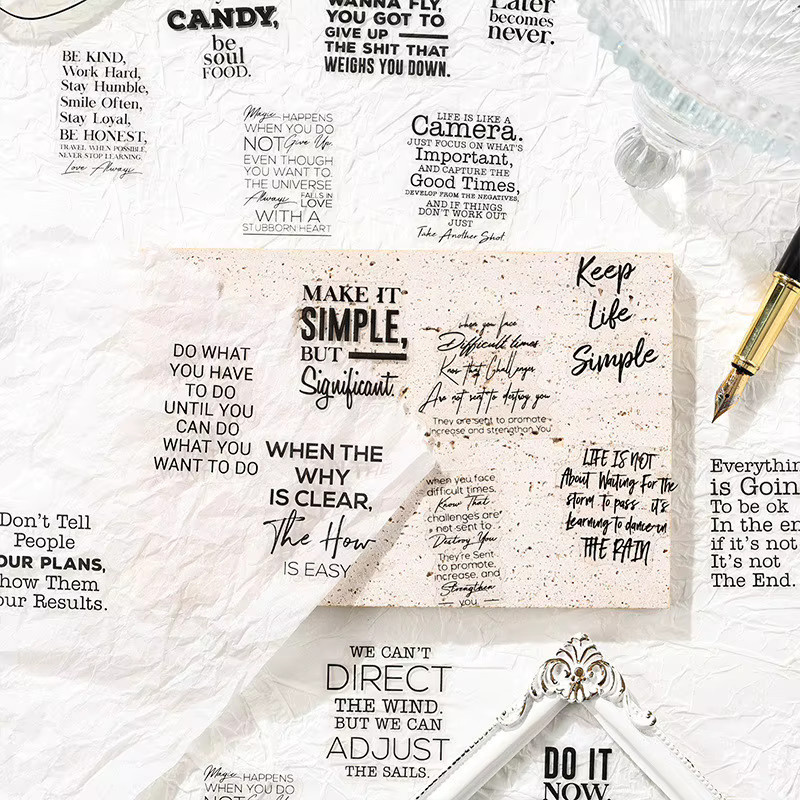 CANDY,
be
soul
FOOD.
WANNA FLY,
YOU GOT TO
GIVE UP
THE SHIT THAT
WEIGHS YOU DOWN.
Later
becomes
never.
BE KIND,
Work Hard,
Stay Humble,
Smile Often,
Stay Loyal,
BE HONEST,
TRAVEL WHEN POSSIBLE,
NEVER STOP LEARNING,
Love Always
Magic HAPPENS
WHEN YOU DO
NOT Give Up,
EVEN THOUGH
YOU WANT TO.
THE UNIVERSE
Always FALLS IN LOVE
WITH A
STUBBORN HEART
LIFE IS LIKE A
Camera.
JUST FOCUS ON WHAT'S
Important,
AND CAPTURE THE
Good Times,
DEVELOP FROM THE NEGATIVES,
AND IF THINGS
DON'T WORK OUT
JUST
Take Another Shot.
MAKE IT
SIMPLE,
BUT
Significant.
Keep
Life
Simple
when you face
Difficult times
Know that Challenges
Are not sent to destroy you
They are sent to promote
increase and strengthen You
DO WHAT
YOU HAVE
TO DO
UNTIL YOU
CAN DO
WHAT YOU
WANT TO DO
WHEN THE
WHY
IS CLEAR,
The How
IS EASY
when you face
difficult times,
Know That
challenges are
not sent to
Destroy You
They're Sent
to promote,
increase, and
Strengthen
you
LIFE IS NOT
About Waiting For The
storm to pass it's
learning to dance in
THE RAIN
Everythin
is Goin
To be ok
In the en
if it's not
It's not
The End.
Don't Tell
People
OUR PLANS,
how Them
our Results.
WE CAN'T
DIRECT
THE WIND.
BUT WE CAN
ADJUST
THE SAILS.
Magic HAPPENS
WHEN YOU DO
NOT Give Up
DO IT
NOW.